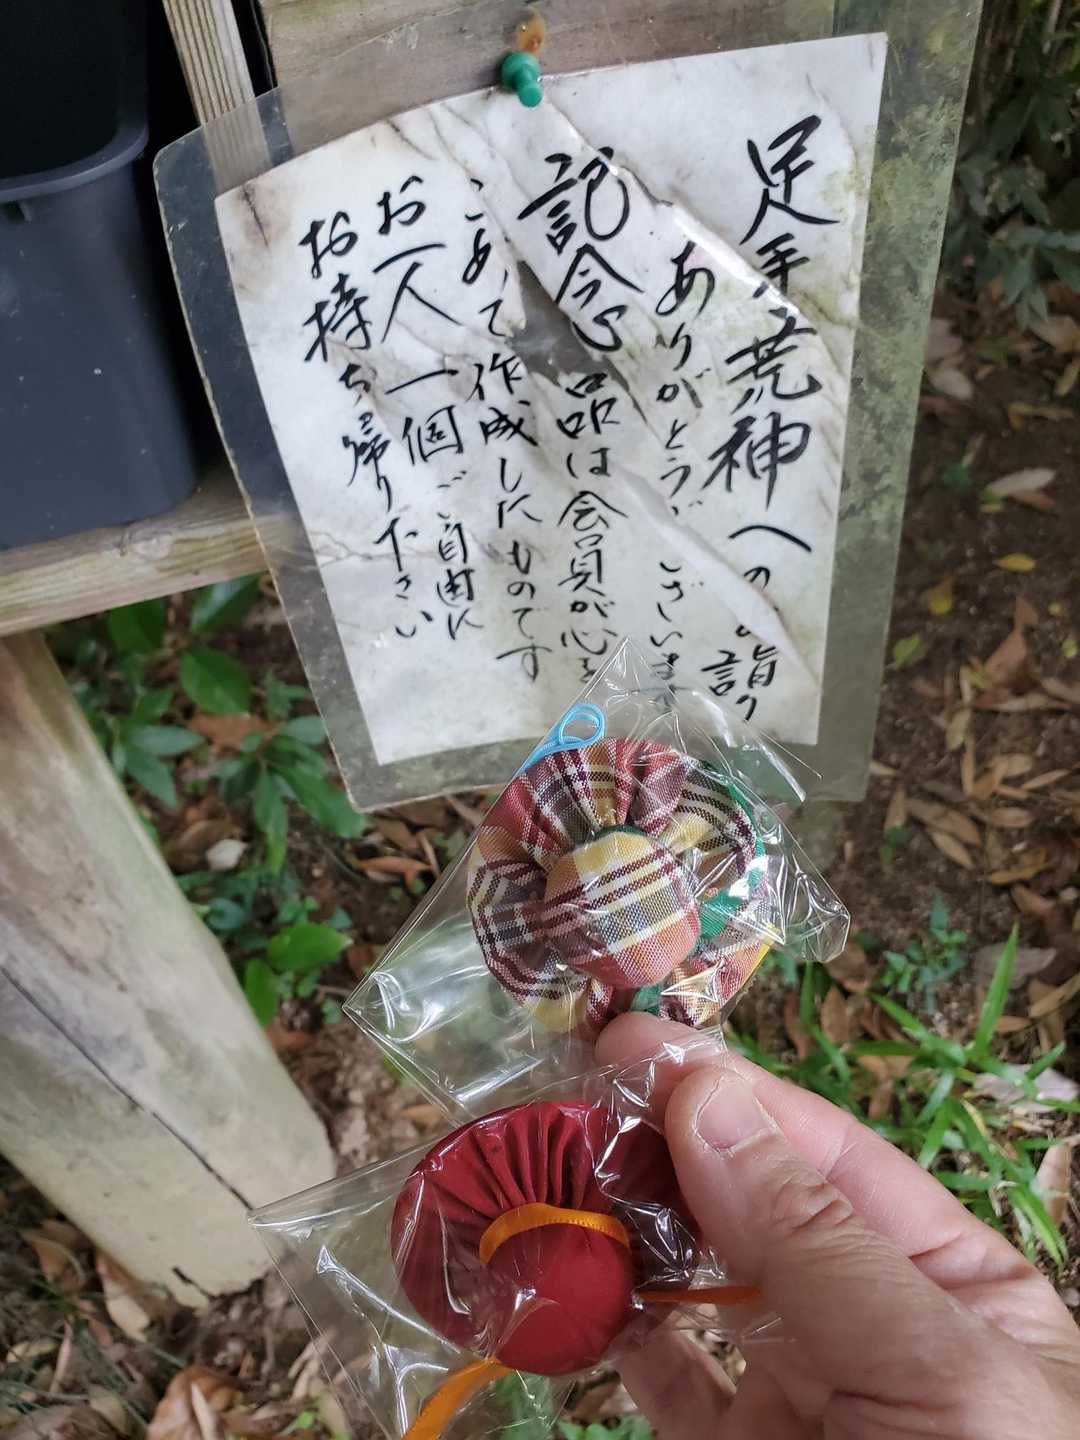 足手荒神への詣り
ありがとうございます
記念品は会員が心を
こめて作成したものです
お一人一個ご自由に
お持ち帰り下さい